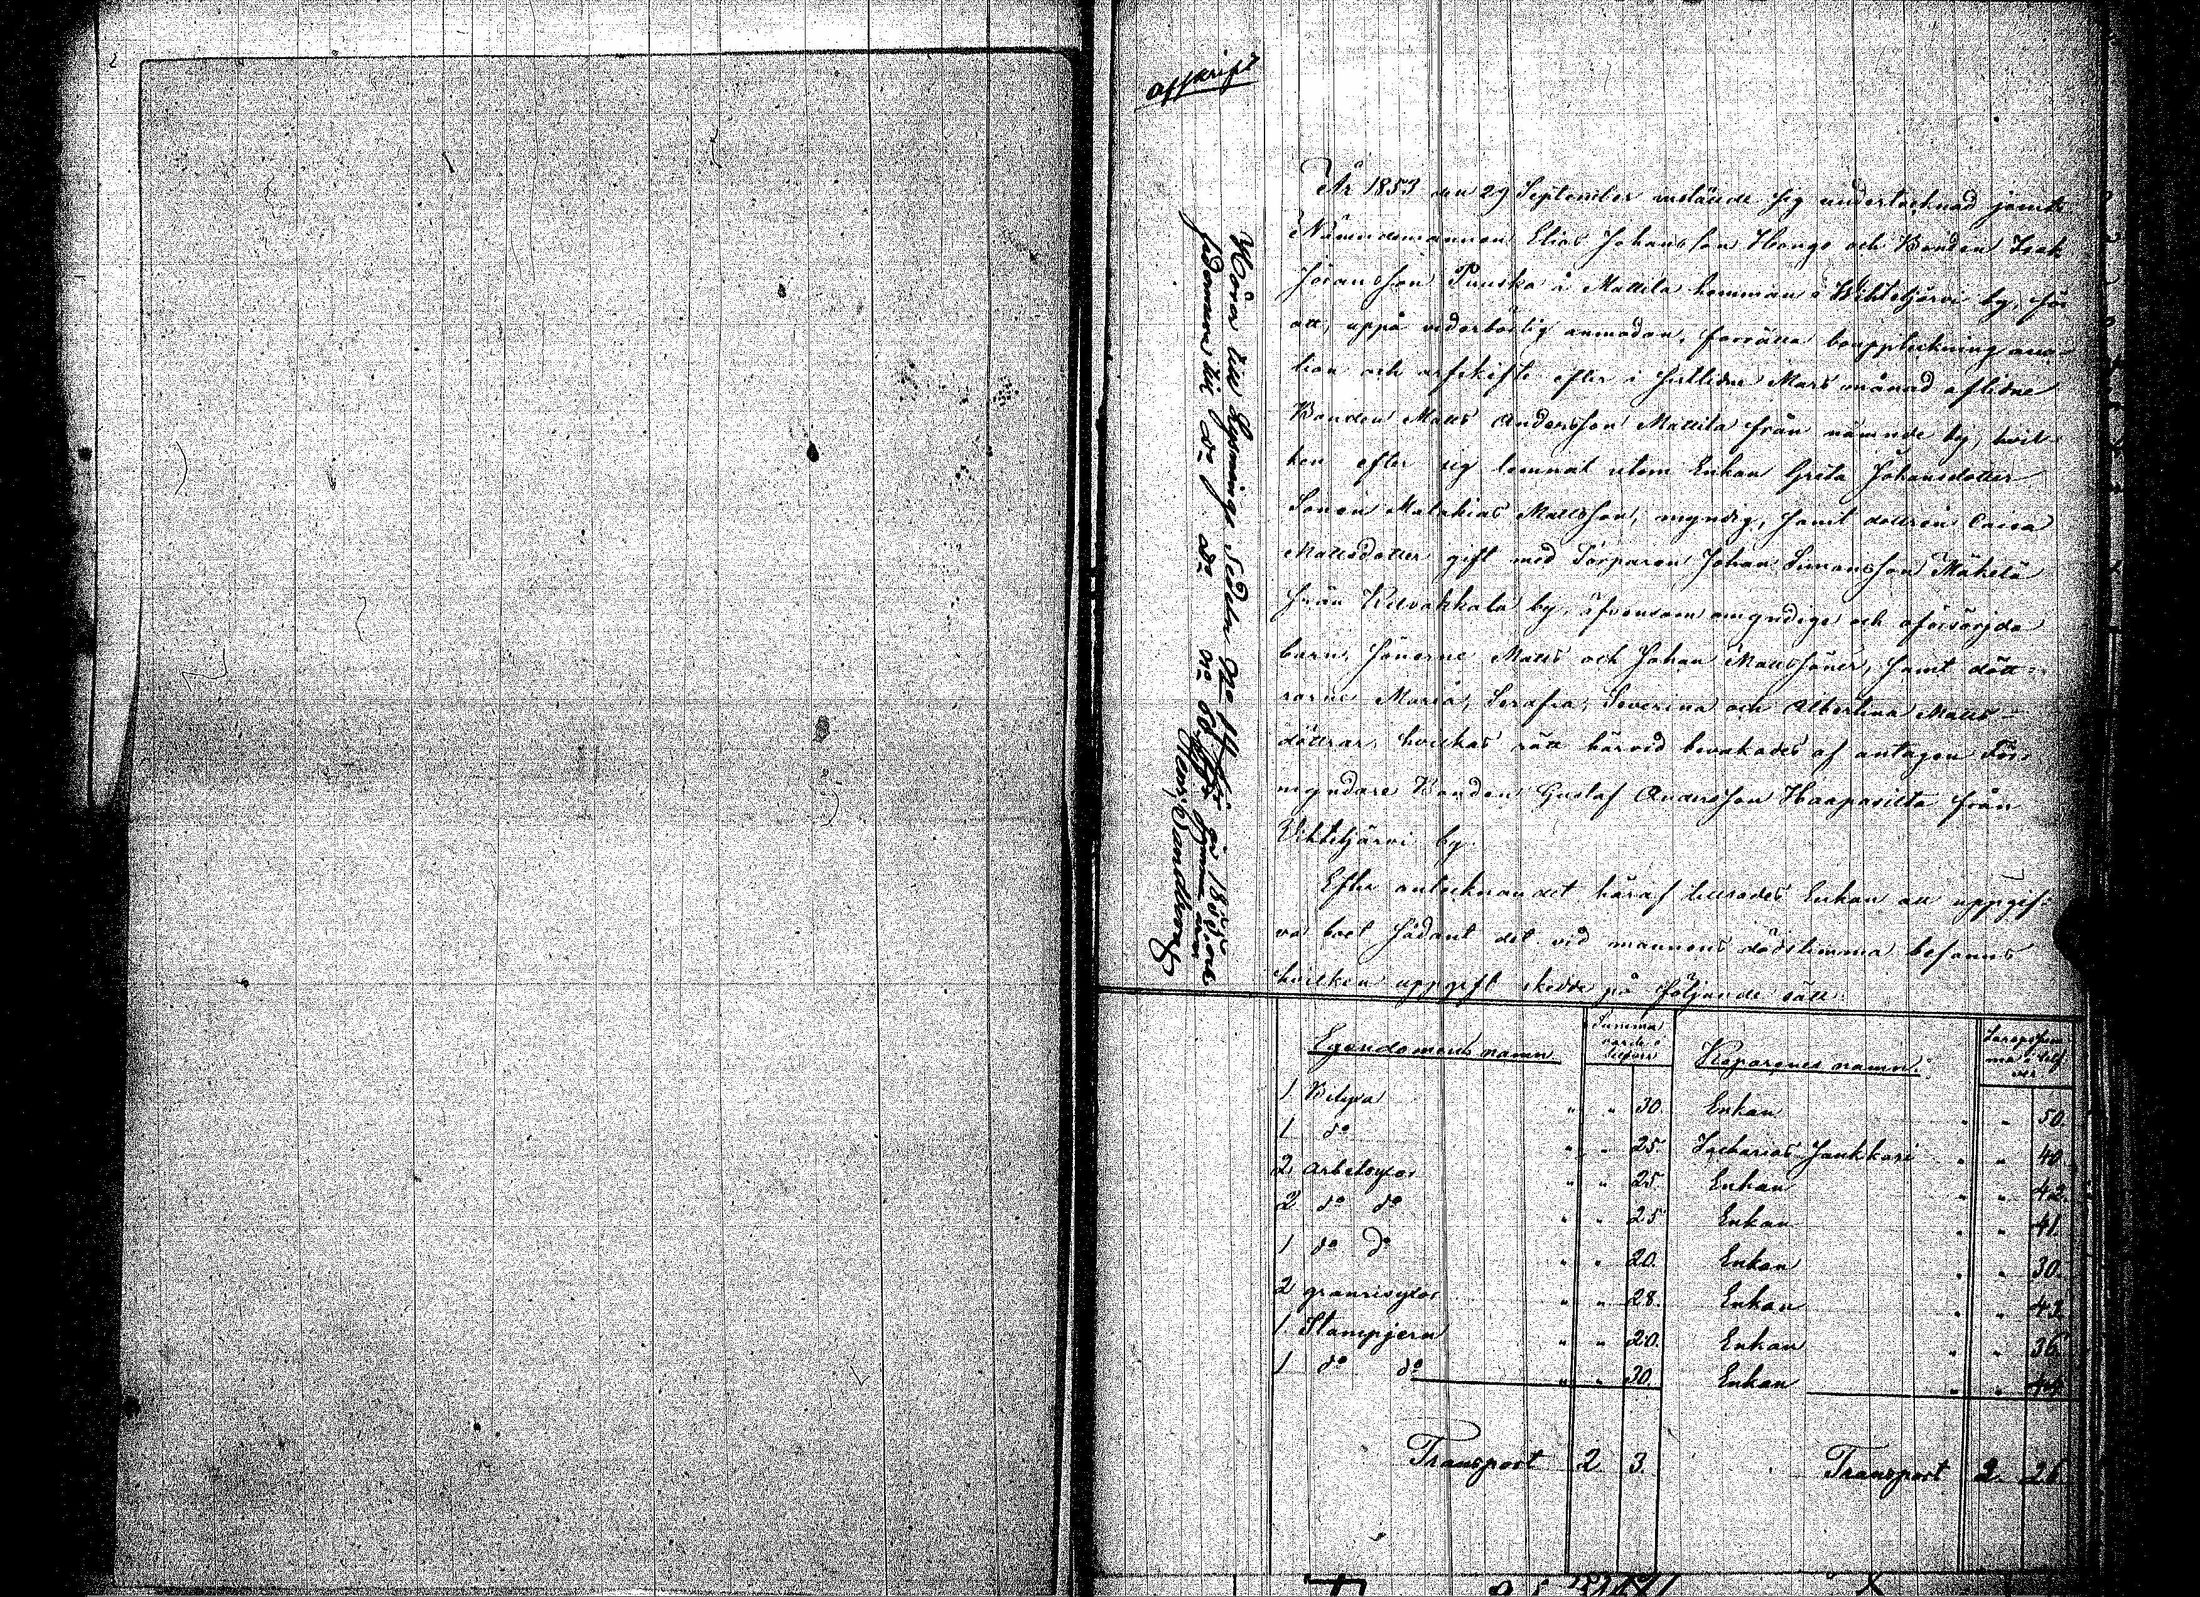 Afskrift
År 1853 den 29 September instälde sig undertecknad jemte
Nämndemannen Elias Johansson Hongo och Bonden Isak
Jöransson Punska å Mattila hemman i Wihteljärvi by, för
att, uppå vederbörlig anmodan, förrätta bouppteckning auc-
tion och arfskifte efter i sistledne Mars månad aflidne
Bonden Matts Andersson Mattila från nämnde by, hvil-
ken efter sig lemnat utom Enkan Greta Johansdotter
Sonen Malakias Mattsson, myndig, samt dottren Caisa
Mattsdotter gift med Torparen Johan Simonsson Mäkelä
från Kilvakkala by, äfvensom omyndige och oförsörjda
barn, Sönerne Matts och Johan Mattssöner, samt dött-
rarne Maria, Serafia, Severina och Albertina Matts-
döttrar, hvilkas rätt härvid bevakades af antagen För-
myndare Bonden Gustaf Andersson Haapasilta från
Vihteljärvi by.
Efter antecknandet häraf tillsades Enkan att uppgif-
va boet sådant det vid mannens dödstimma befanns
hvilken uppgift skedde på följande sätt:
Egendomens namn Summa värde i Silfver Köparenes namn Inropssum-
ma i silf-
ver
1 Bilyxa " " 30. Enkan " " 50.
1 do " " 25. Zacharias Jankkari " " 40.
2 arbetsyxor " " 25. Enkan " " 42.
2 do do " " 25 Enkan " " 41.
1 do do " " 20. Enkan " " 30.
2 " " 28. Enkan " " 43
1 Stampjern " " 20. Enkan " " 36.
1 do do " " 30. Enkan " " 44.
Transport 2 3. Transport 3. 26.
Höra till
Sandberg